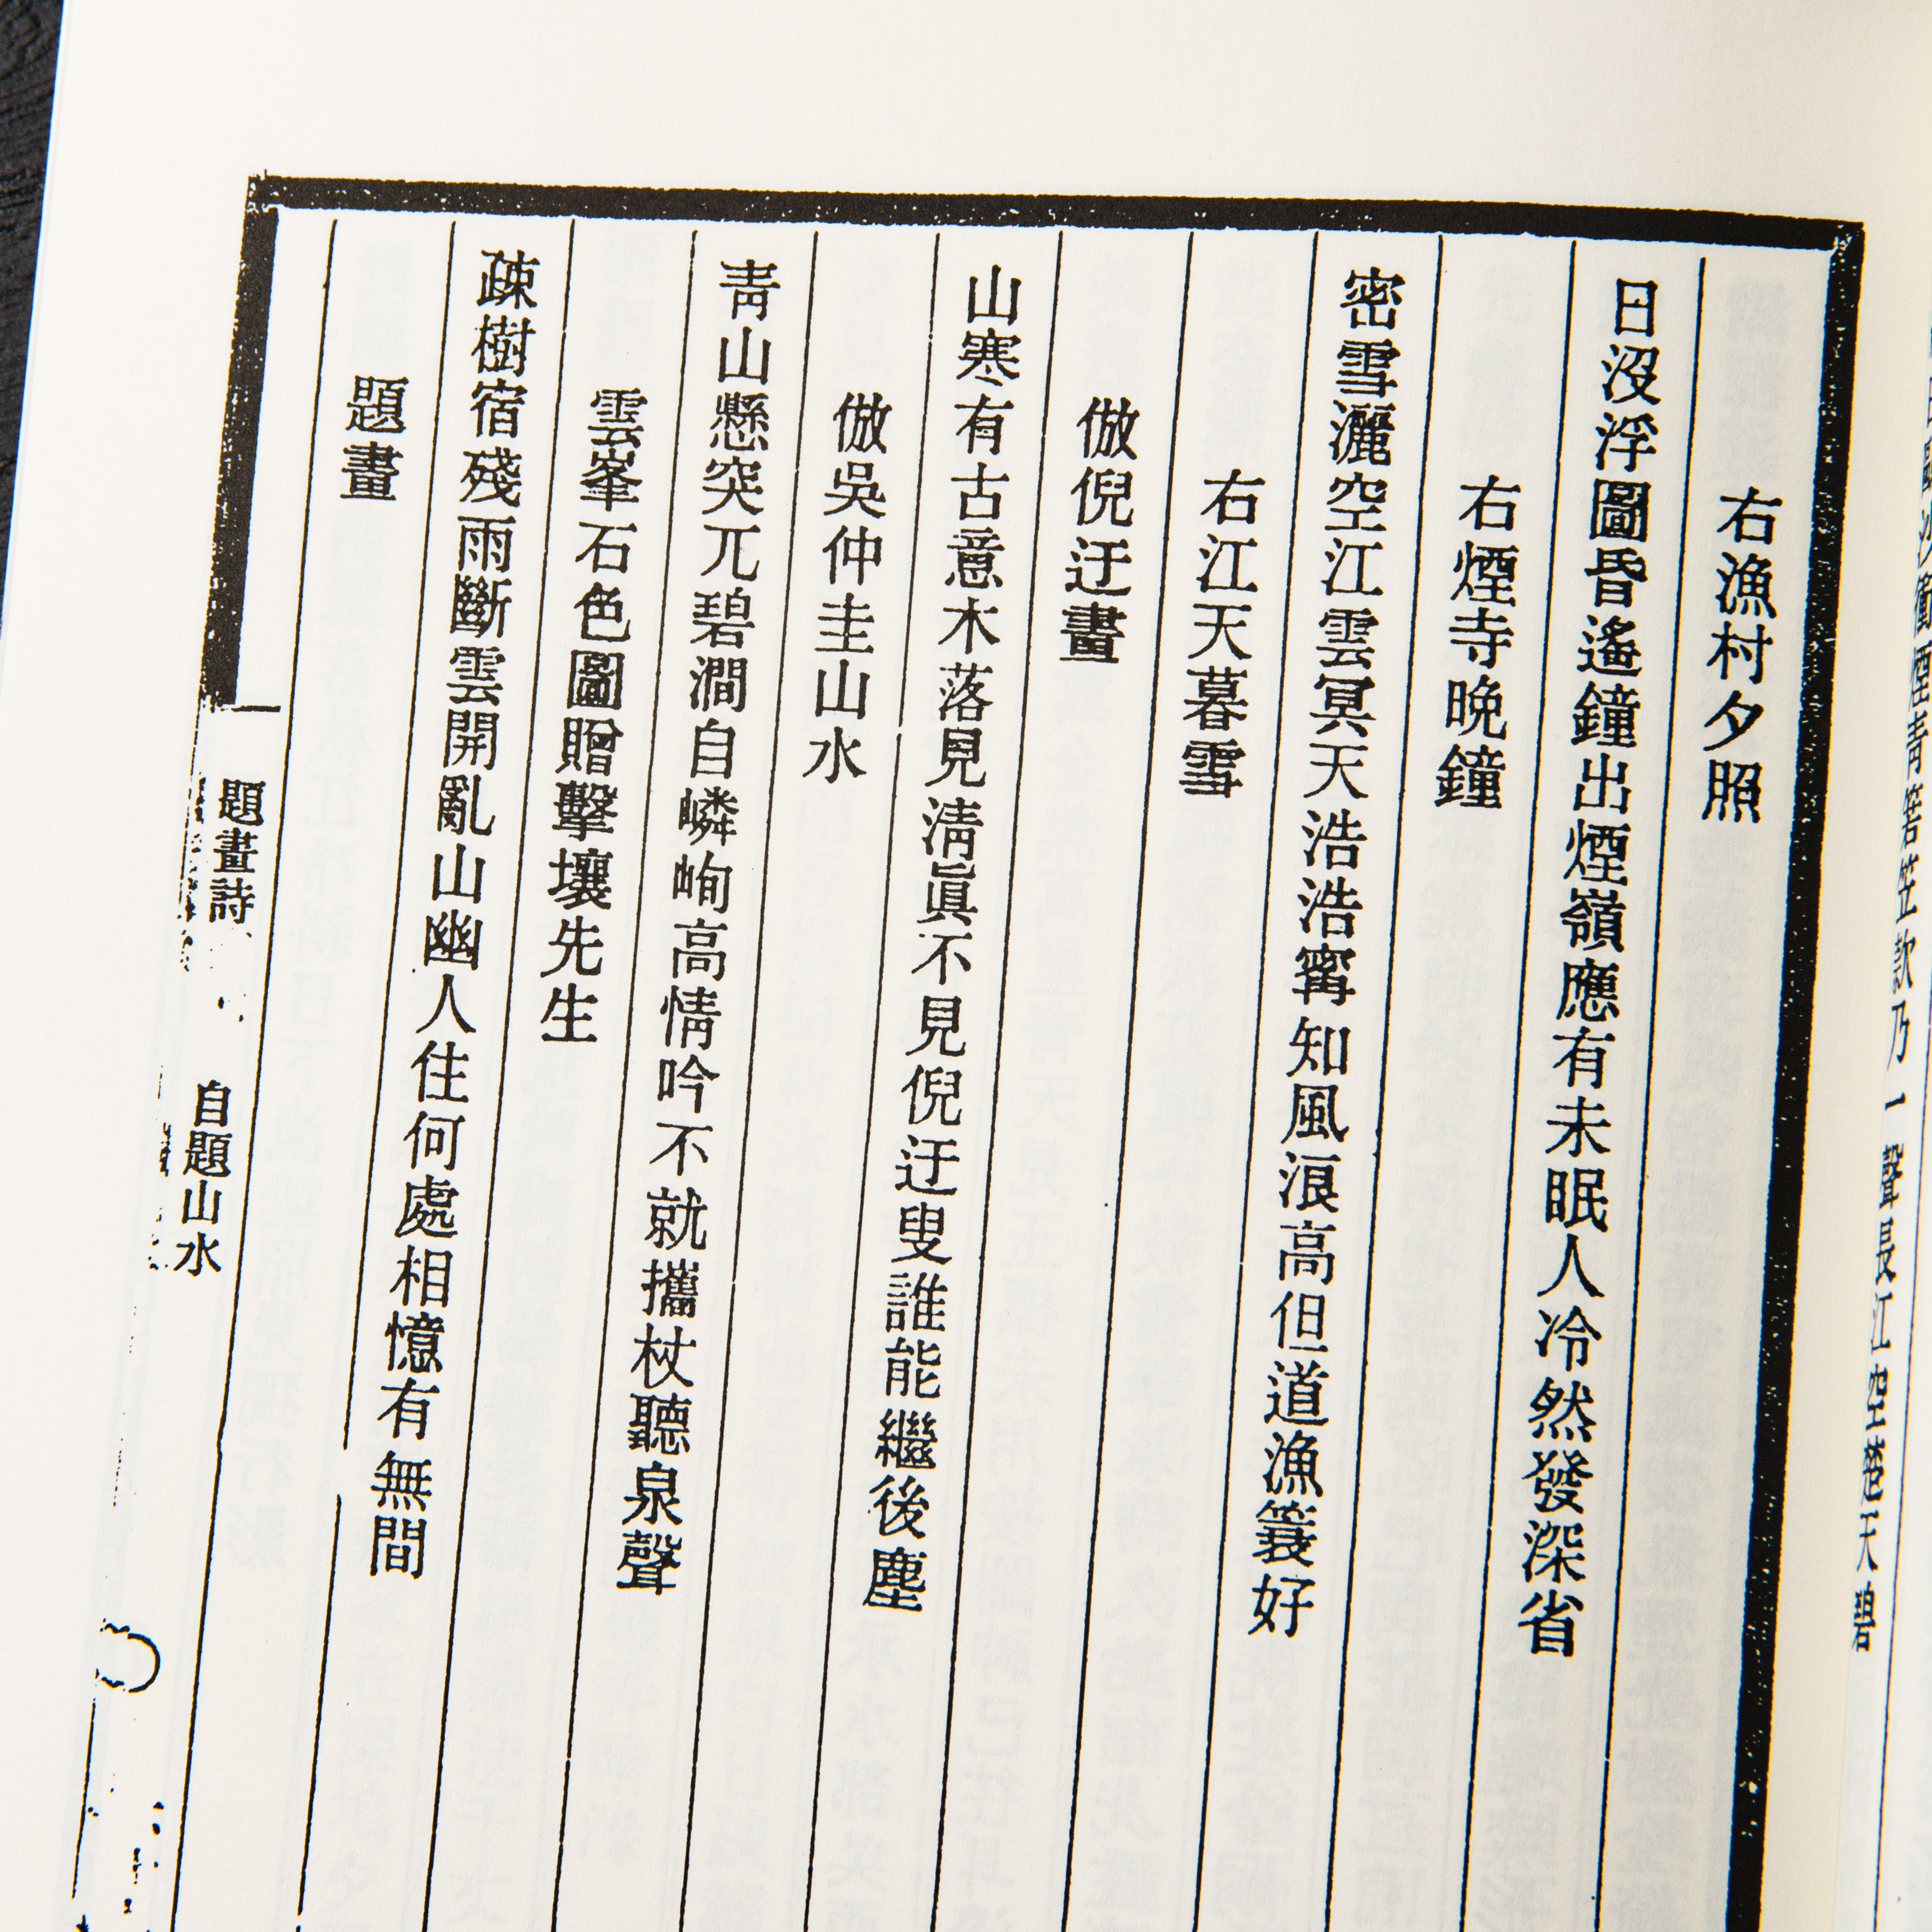 右漁村夕照
日沒浮圖昏遙鐘出煙嶺應有未眠人冷然發深省
右煙寺晚鐘
密雪灑空江雲冥天浩浩寗知風浪高但道漁簑好
右江天暮雪
倣倪迂畫
山寒有古意木落見淸眞不見倪迂叟誰能繼後塵
倣吳仲圭山水
靑山懸突兀碧澗自嶙峋高情吟不就攜杖聽泉聲
雲峯石色圖贈擊壤先生
疎樹宿殘雨斷雲開亂山幽人住何處相憶有無間
題畫
題畫詩 自題山水